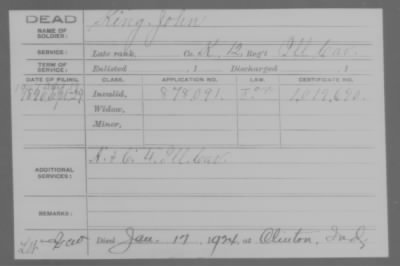 DEAD
NAME OF SOLDIER: King, John
SERVICE: Late rank, Co. K, 12 Reg't Ill. Cav.
TERM OF SERVICE: Enlisted , 1 Discharged , 1
DATE OF FILING. CLASS. APPLICATION NO. LAW. CERTIFICATE NO.
Invalid, 878,091.
Widow,
Minor,
ADDITIONAL SERVICES: Ill. Cav.
REMARKS:
Died Jan. 17, 1924, at Clinton, Ind.